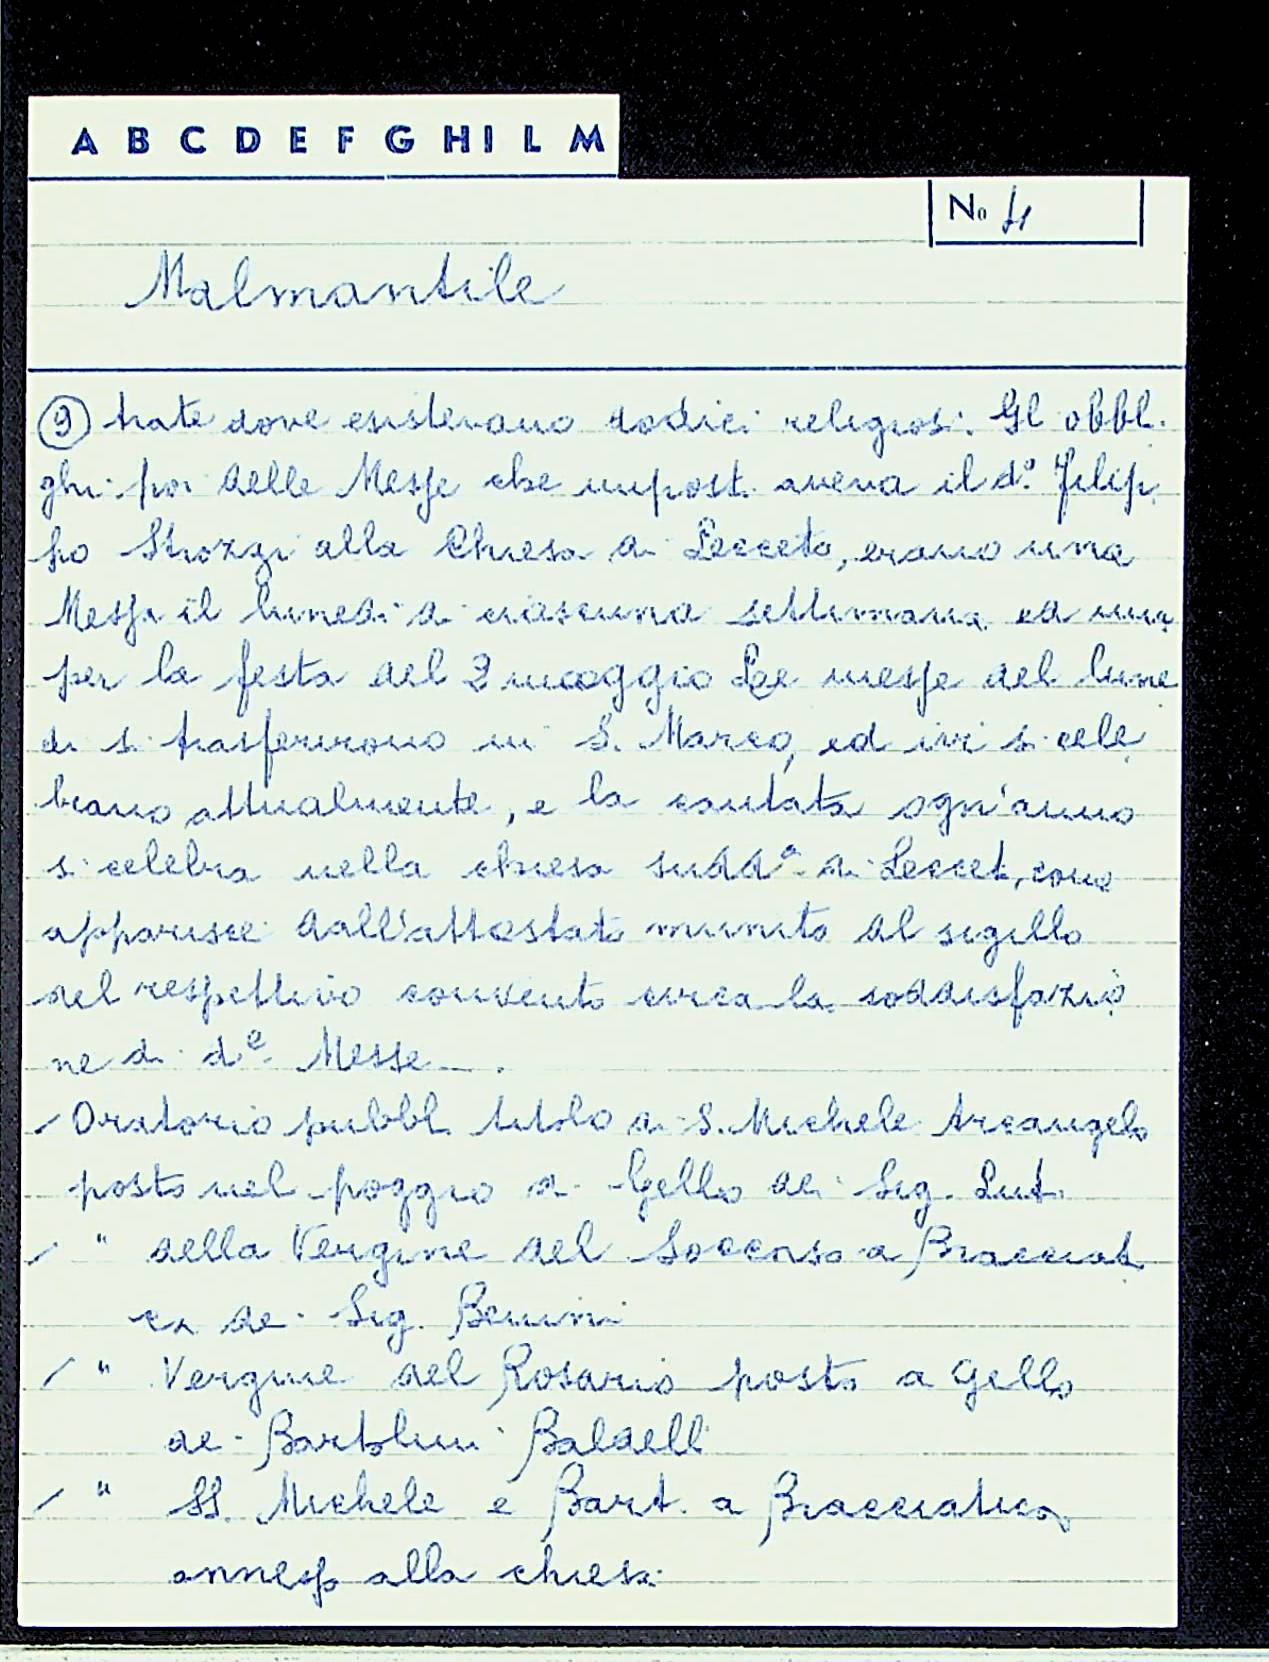 A B C D E F G H I L M
No 4
Malmantile
9 trate dove esistevano dodici religiosi. Gl obbl.
ghi poi delle Messe che impost. aveva il d.º Filip
po Strozzi alla Chiesa di Lecceto, erano una
Messa il lunedi di ciascuna settimana ed una
per la festa del 2 maggio Le messe del lune
di si trasferirono in S. Marco, ed ivi si cele
brano attualmente, e la cantata ogn'anno
si celebra nella chiesa sudd.ª di Leccet, come
apparisce dall'attestato munito del sigillo
del respettivo convento circa la soddisfazio
ne di d.e Messe.
/ Oratorio pubbl. titolo di S. Michele Arcangelo
posto nel poggio di Gello dei Sig.
/ " della Vergine del Soccorso a Bracciat
ca de Sig.
/ " Vergine del Rosario posto a Gello
de Bartolini Baldelli
/ " SS. Michele e Bart. a Bracciatica
annesso alla chiesa